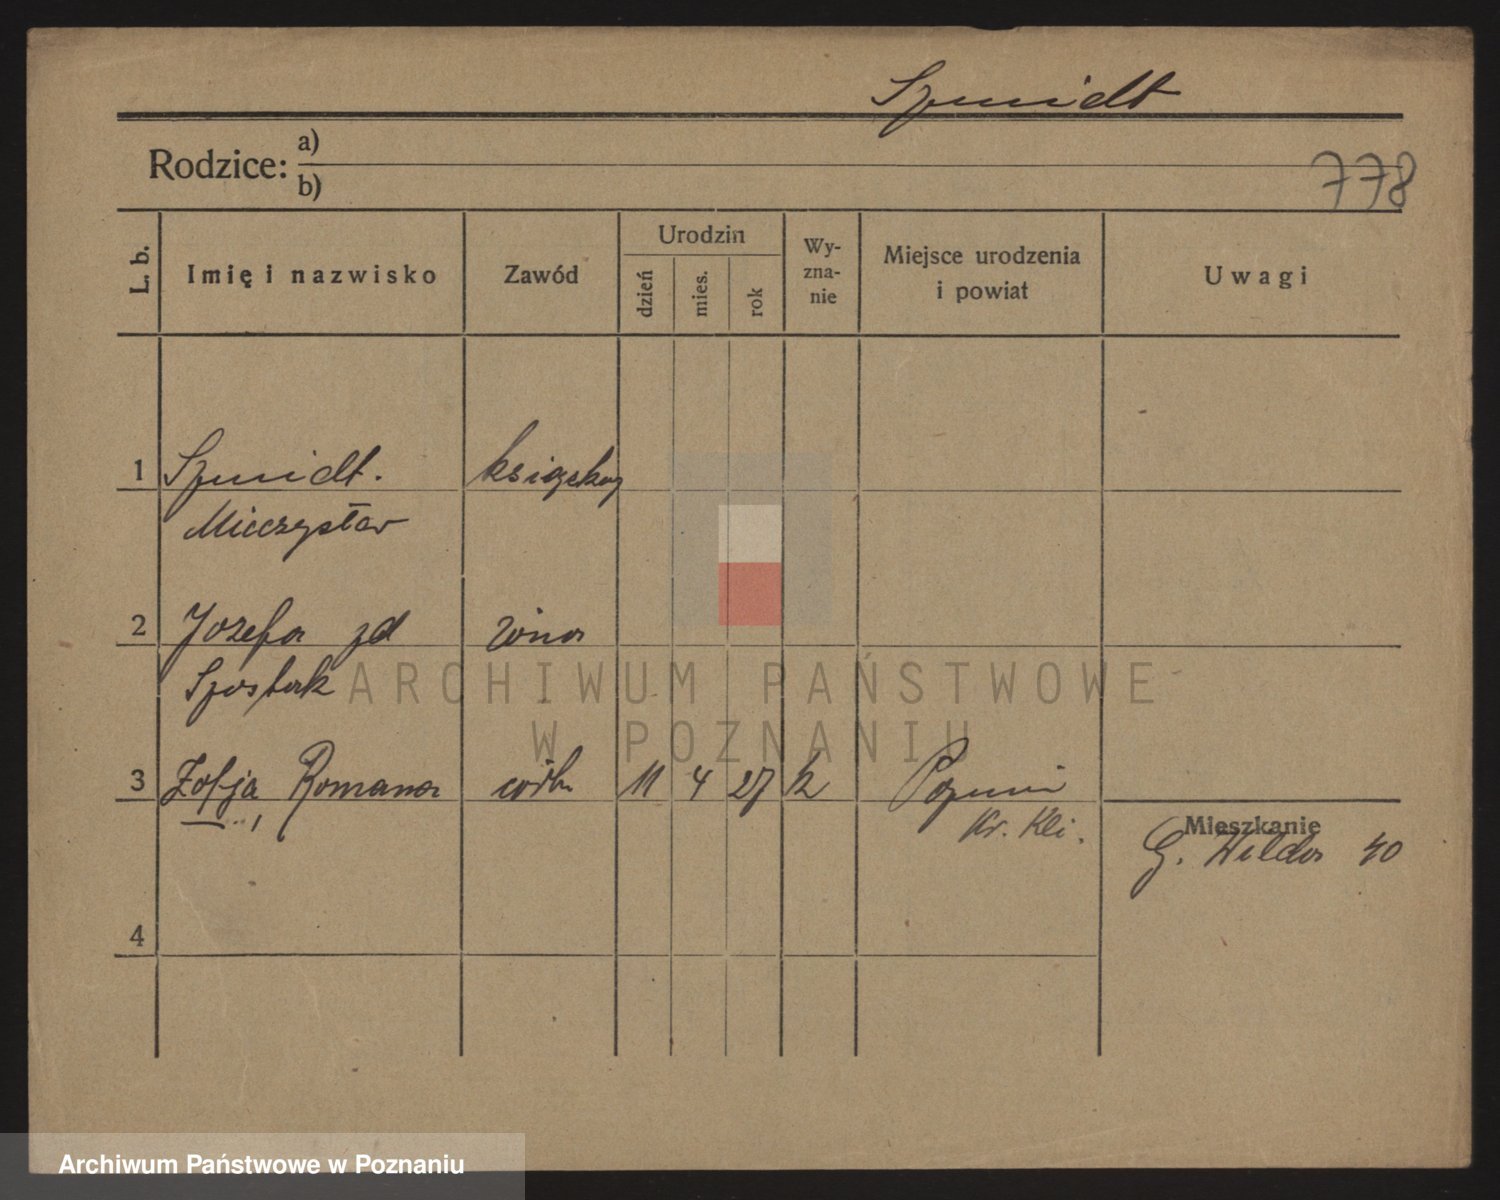 Szmidt
Rodzice: a)
b)
778
L. b.
Imię i nazwisko
Zawód
Urodzin
dzień
mies.
rok
Wy-
zna-
nie
Miejsce urodzenia
i powiat
Uwagi
1 Szmidt. księgkow
Mieczysław
2 Jozefa zd żona
Szostak
3 Zofja Romana córk 11 4 27 k Poznań
Kr. Kli.
Mieszkanie
G. Wilda 40
4
ARCHIWUM PAŃSTWOWE
W POZNANIU
Archiwum Państwowe w Poznaniu